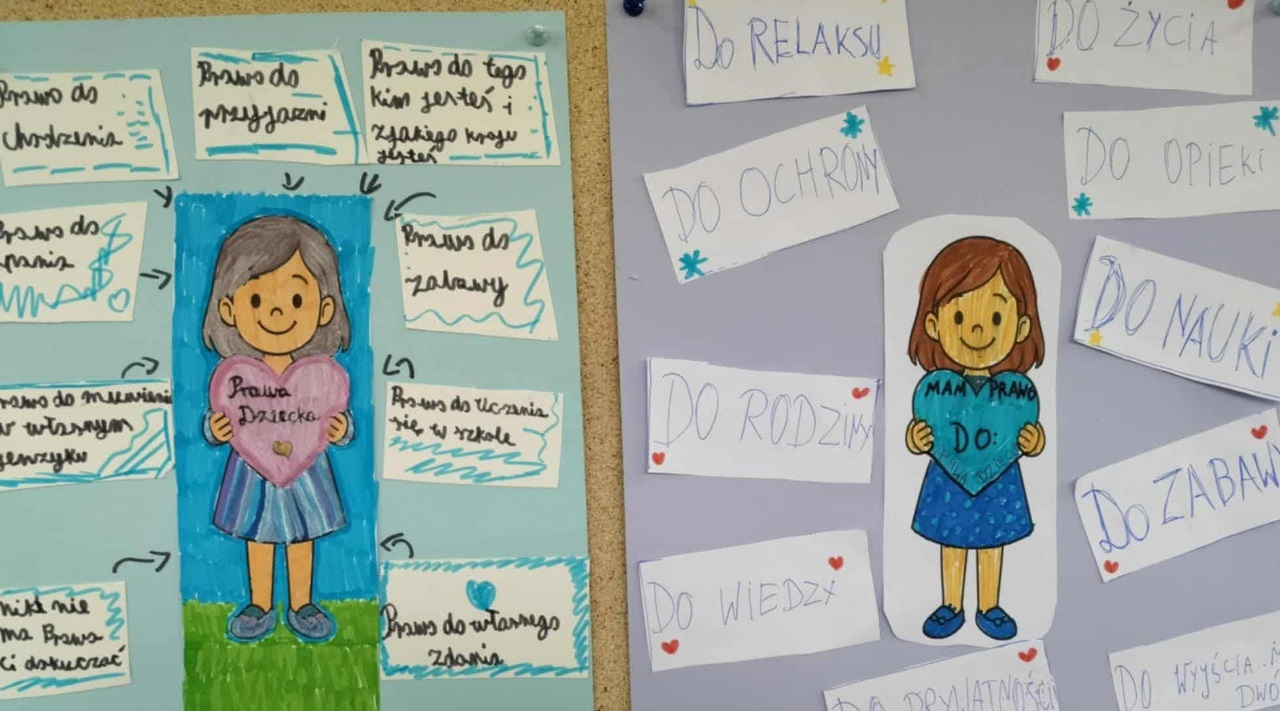 Prawo do
chodzenia
Prawo do
przyjaźni
Prawo do tego
kim jesteś i
z jakiego kraju
jesteś
Prawo do
spania
Prawo do
zabawy
Prawo do mówienia
w własnym
jenzyku
Prawa
Dziecka
Prawo do Uczenia
się w szkole
nikt nie
ma Prawa
Ci dokuczać
Prawo do własnego
Zdania
DO RELAKSU
DO ŻYCIA
DO OCHRONY
DO OPIEKI
DO NAUKI
DO RODZINY
MAM PRAWO
DO:
DO ZABAWY
DO WIEDZY
DO PRYWATNOŚCI
DO WYJŚCIA